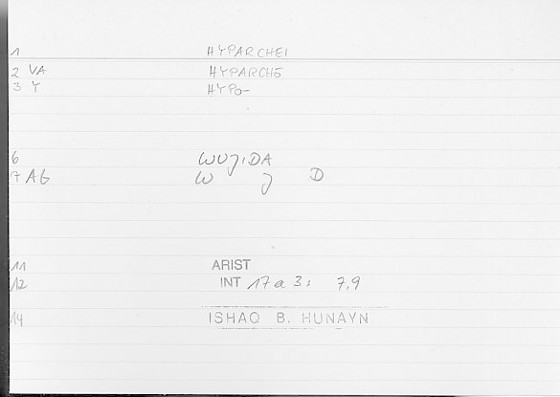 1 HYPARCHEI
2 VA HYPARCHŌ
3 Y HYPO-
6 WUJ,DA
7 AG W J D
11 ARIST
12 INT 17a 3; 7,9
14 ISHAQ B. HUNAYN